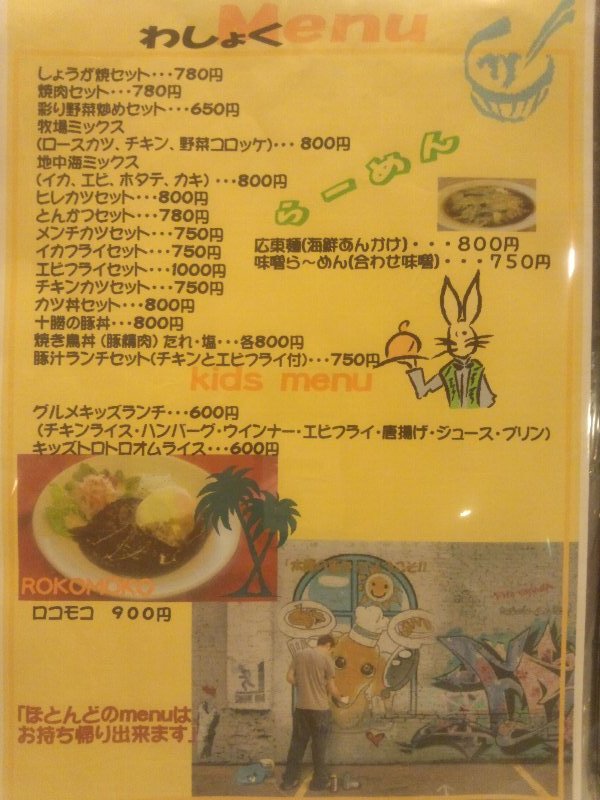 Menu
わしょく
しょうが焼セット・・・780円
焼肉セット・・・780円
彩り野菜炒めセット・・・650円
牧場ミックス
(ロースカツ、チキン、野菜コロッケ)・・・800円
地中海ミックス
(イカ、エビ、ホタテ、カキ)・・・800円
ヒレカツセット・・・800円
とんかつセット・・・780円
メンチカツセット・・・750円
イカフライセット・・・750円
エビフライセット・・・1000円
チキンカツセット・・・750円
カツ丼セット・・・800円
十勝の豚丼・・・800円
焼き鳥丼(豚精肉)たれ・塩・・・各800円
豚汁ランチセット(チキンとエビフライ付)・・・750円
らーめん
広東麺(海鮮あんかけ)・・・800円
味噌ら～めん(合わせ味噌)・・・750円
kids menu
グルメキッズランチ・・・600円
(チキンライス・ハンバーグ・ウインナー・エビフライ・唐揚げ・ジュース・プリン)
キッズトロトロオムライス・・・600円
ROKOMOKO
ロコモコ 900円
「ほとんどのmenuは
お持ち帰り出来ます」